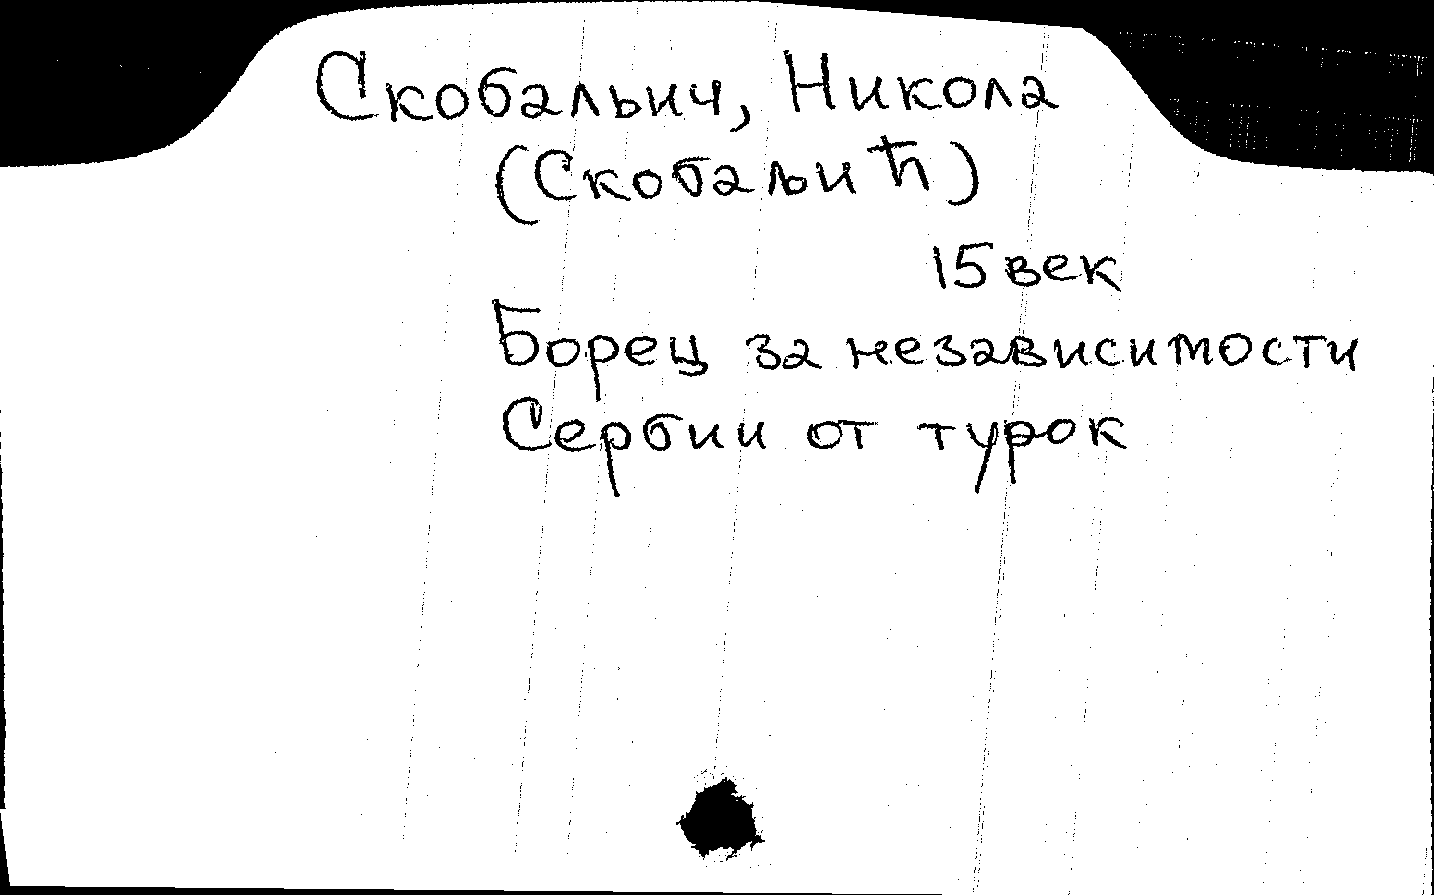 Скобальич, Никола
(Скобаљић)
15 век
Борец за независимости
Сербии от турок